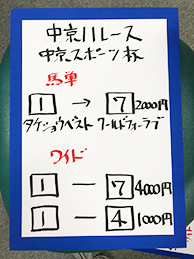 中京11レース
中京スポーツ杯
馬単
1 → 7 2000円
タケショウベスト ワールドフォーラブ
ワイド
1 ー 7 4000円
1 ー 4 1000円